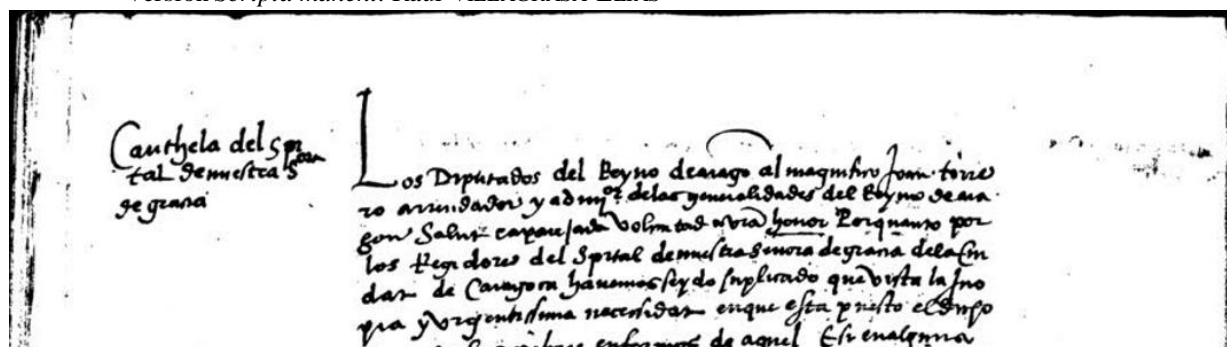 Versión Scripta manent: Raúl VILLAGRASA-ELÍAS
Cauthela del Spi
tal de nuestra Sora
de gracia
Los Diputados del Reyno de arago al magnifico Joan torre
ro arrendador y admjor delas generalidades del Reyno de ara
gon Salut e aparejada voluntad a vra honor Porquanto por
los Regidores del Spital de nuestra Senora de gracia dela Ciu
dat de Caragoca havemos seydo suplicado que vista la Jno
pia y vrgentissima necessidat enque esta puesto el dicho
enfermos de aquel Esi en alguna